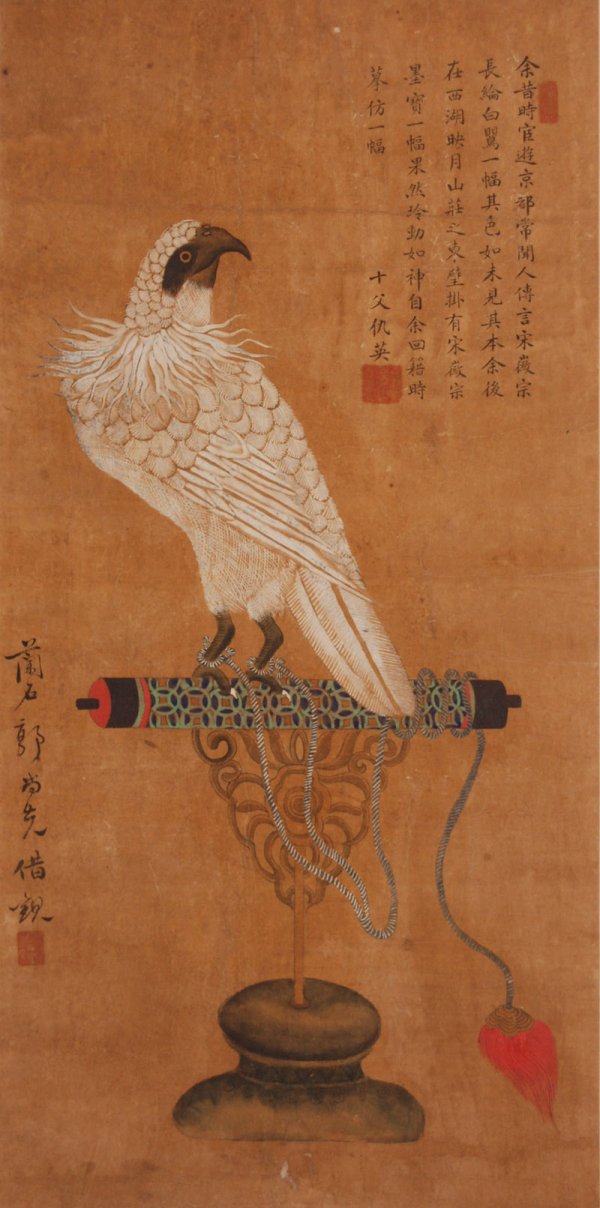 余昔時宦遊京都常聞人傳言宋徽宗
長綸白鷺一幅其色如未見其本余後
在西湖映月山莊之東壁掛有宋徽宗
墨寶一幅果然玲動如神自余回籍時
摹仿一幅
十父仇英
蘭石郭尚先借觀